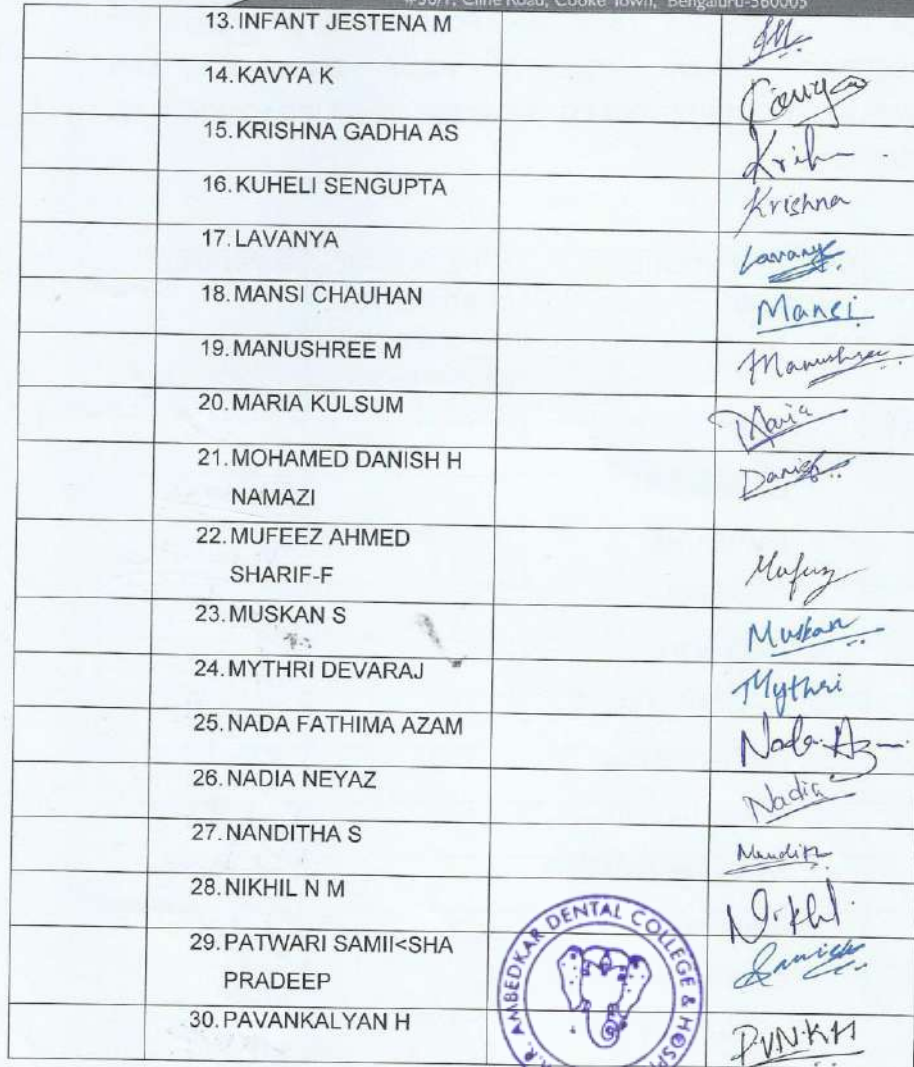 #36/1, Cline Road, Cooke Town, Bengaluru-560005
13. INFANT JESTENA M
14. KAVYA K
Kavya
15. KRISHNA GADHA AS
Krish
16. KUHELI SENGUPTA
Krishna
17. LAVANYA
Lavanya
18. MANSI CHAUHAN
Mansi
19. MANUSHREE M
Manushree
20. MARIA KULSUM
Maria
21. MOHAMED DANISH H
NAMAZI
Danish
22. MUFEEZ AHMED
SHARIF-F
Mufeez
23. MUSKAN S
Muskan
24. MYTHRI DEVARAJ
Mythri
25. NADA FATHIMA AZAM
Nada Azam
26. NADIA NEYAZ
Nadia
27. NANDITHA S
Nandith
28. NIKHIL N M
Nikhil
29. PATWARI SAMII<SHA
PRADEEP
30. PAVANKALYAN H
PVN·KH
AMBEDKAR DENTAL COLLEGE & HOSPI